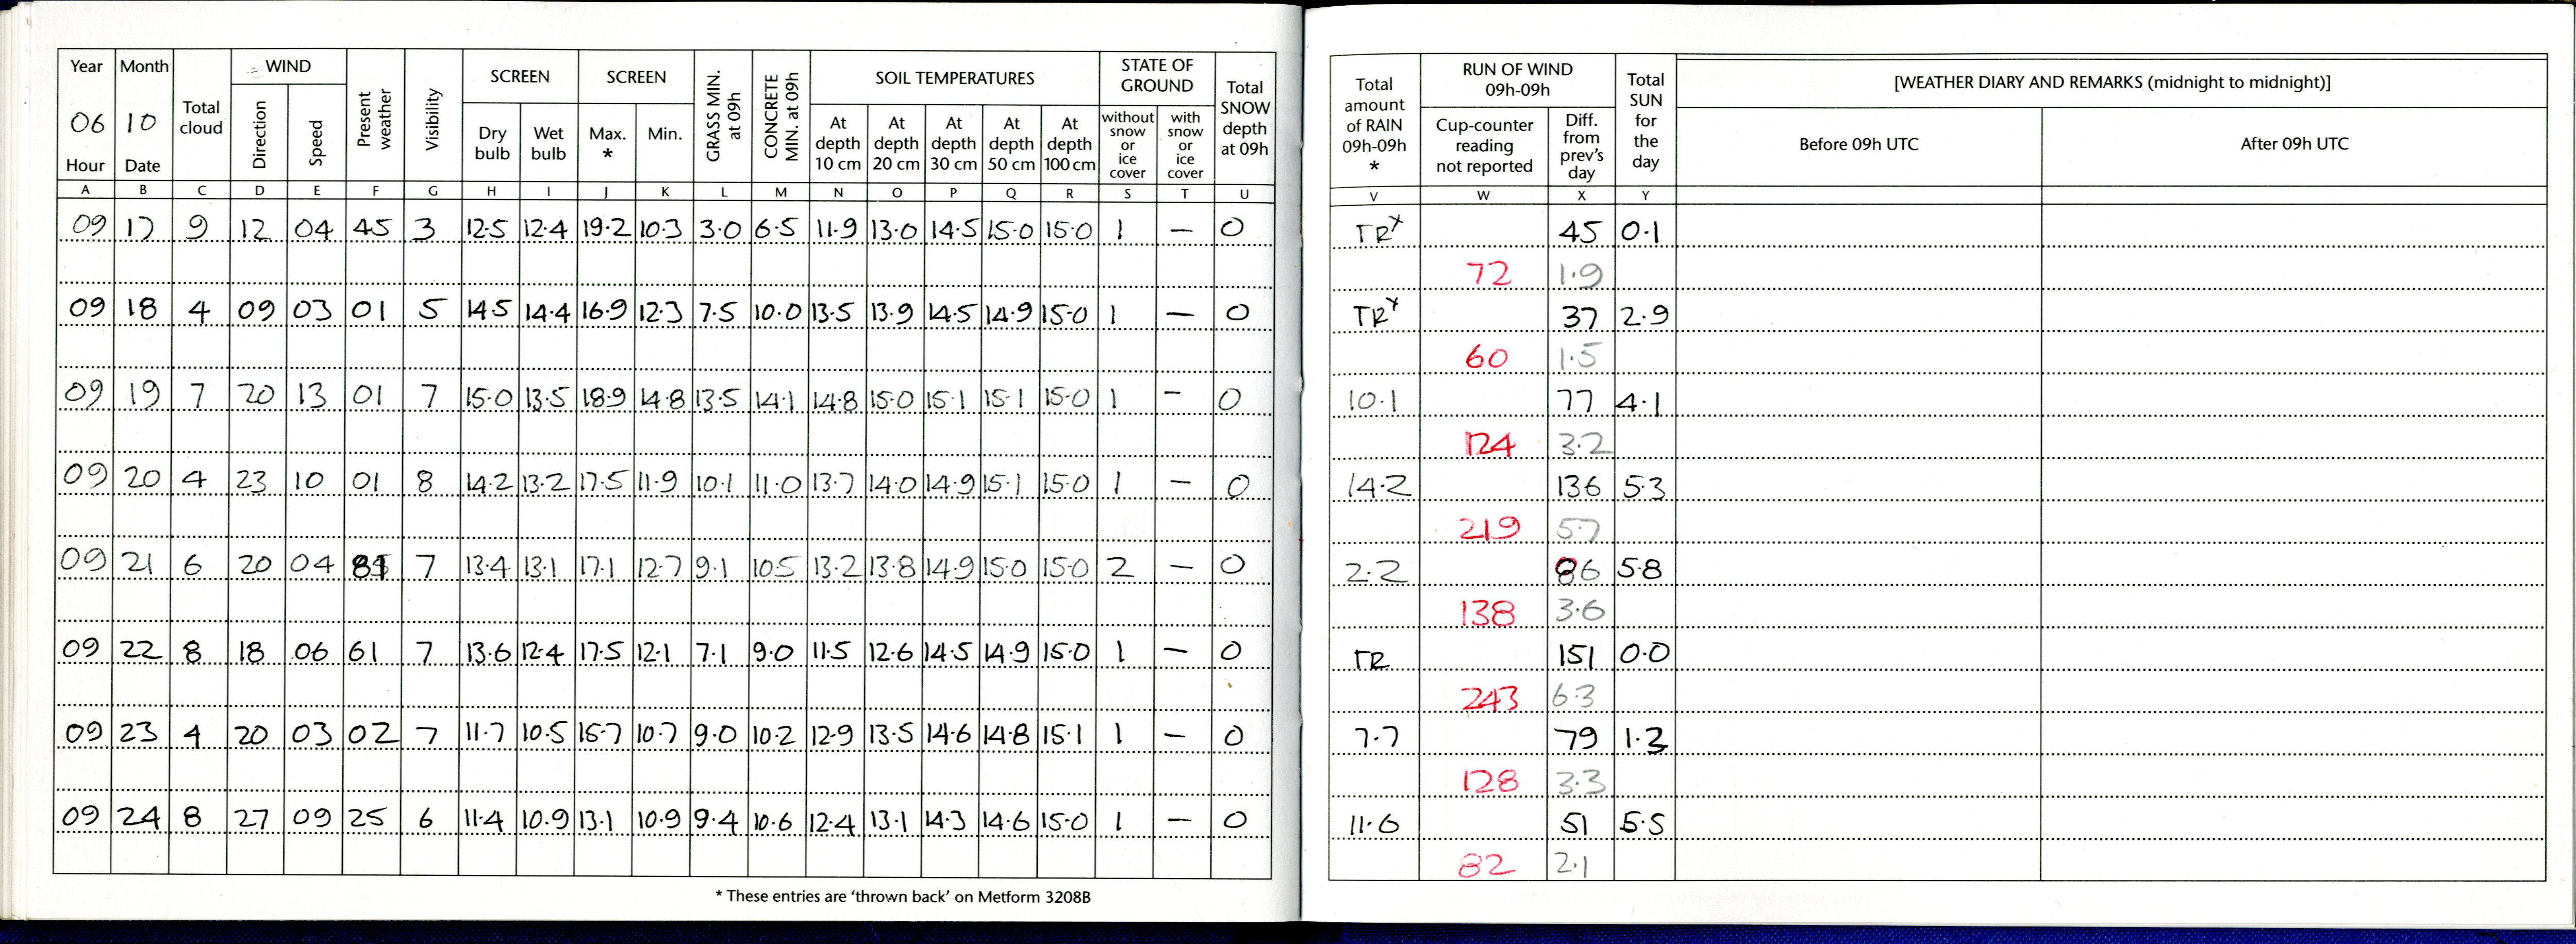 Year Month Total cloud WIND Present weather Visibility SCREEN SCREEN GRASS MIN. at 09h CONCRETE MIN. at 09h SOIL TEMPERATURES STATE OF GROUND Total SNOW depth at 09h
06 10 Direction Speed Dry bulb Wet bulb Max. * Min. At depth 10 cm At depth 20 cm At depth 30 cm At depth 50 cm At depth 100 cm without snow or ice cover with snow or ice cover
Hour Date
A B C D E F G H I J K L M N O P Q R S T U
09 17 9 12 04 45 3 12.5 12.4 19.2 10.3 3.0 6.5 11.9 13.0 14.5 15.0 15.0 1 — 0
09 18 4 09 03 01 5 14.5 14.4 16.9 12.3 7.5 10.0 13.5 13.9 14.5 14.9 15.0 1 — 0
09 19 7 20 13 01 7 15.0 13.5 18.9 14.8 13.5 14.1 14.8 15.0 15.1 15.1 15.0 1 — 0
09 20 4 23 10 01 8 14.2 13.2 17.5 11.9 10.1 11.0 13.7 14.0 14.9 15.1 15.0 1 — 0
09 21 6 20 04 7 13.4 13.1 17.1 12.7 9.1 10.5 13.2 13.8 14.9 15.0 15.0 2 — 0
09 22 8 18 06 61 7 13.6 12.4 17.5 12.1 7.1 9.0 11.5 12.6 14.5 14.9 15.0 1 — 0
09 23 4 20 03 02 7 11.7 10.5 15.7 10.7 9.0 10.2 12.9 13.5 14.6 14.8 15.1 1 — 0
09 24 8 27 09 25 6 11.4 10.9 13.1 10.9 9.4 10.6 12.4 13.1 14.3 14.6 15.0 1 — 0
* These entries are ‘thrown back’ on Metform 3208B
Total amount of RAIN 09h-09h * RUN OF WIND 09h-09h Total SUN for the day [WEATHER DIARY AND REMARKS (midnight to midnight)]
Cup-counter reading not reported Diff. from prev's day Before 09h UTC After 09h UTC
V W X Y
TRx 45 0.1
72 1.9
TRx 37 2.9
60 1.5
10.1 77 4.1
124 3.2
14.2 136 5.3
219 5.7
2.2 86 5.8
138 3.6
TR 151 0.0
243 6.3
7.7 79 1.3
128 3.3
11.6 51 5.5
82 2.1